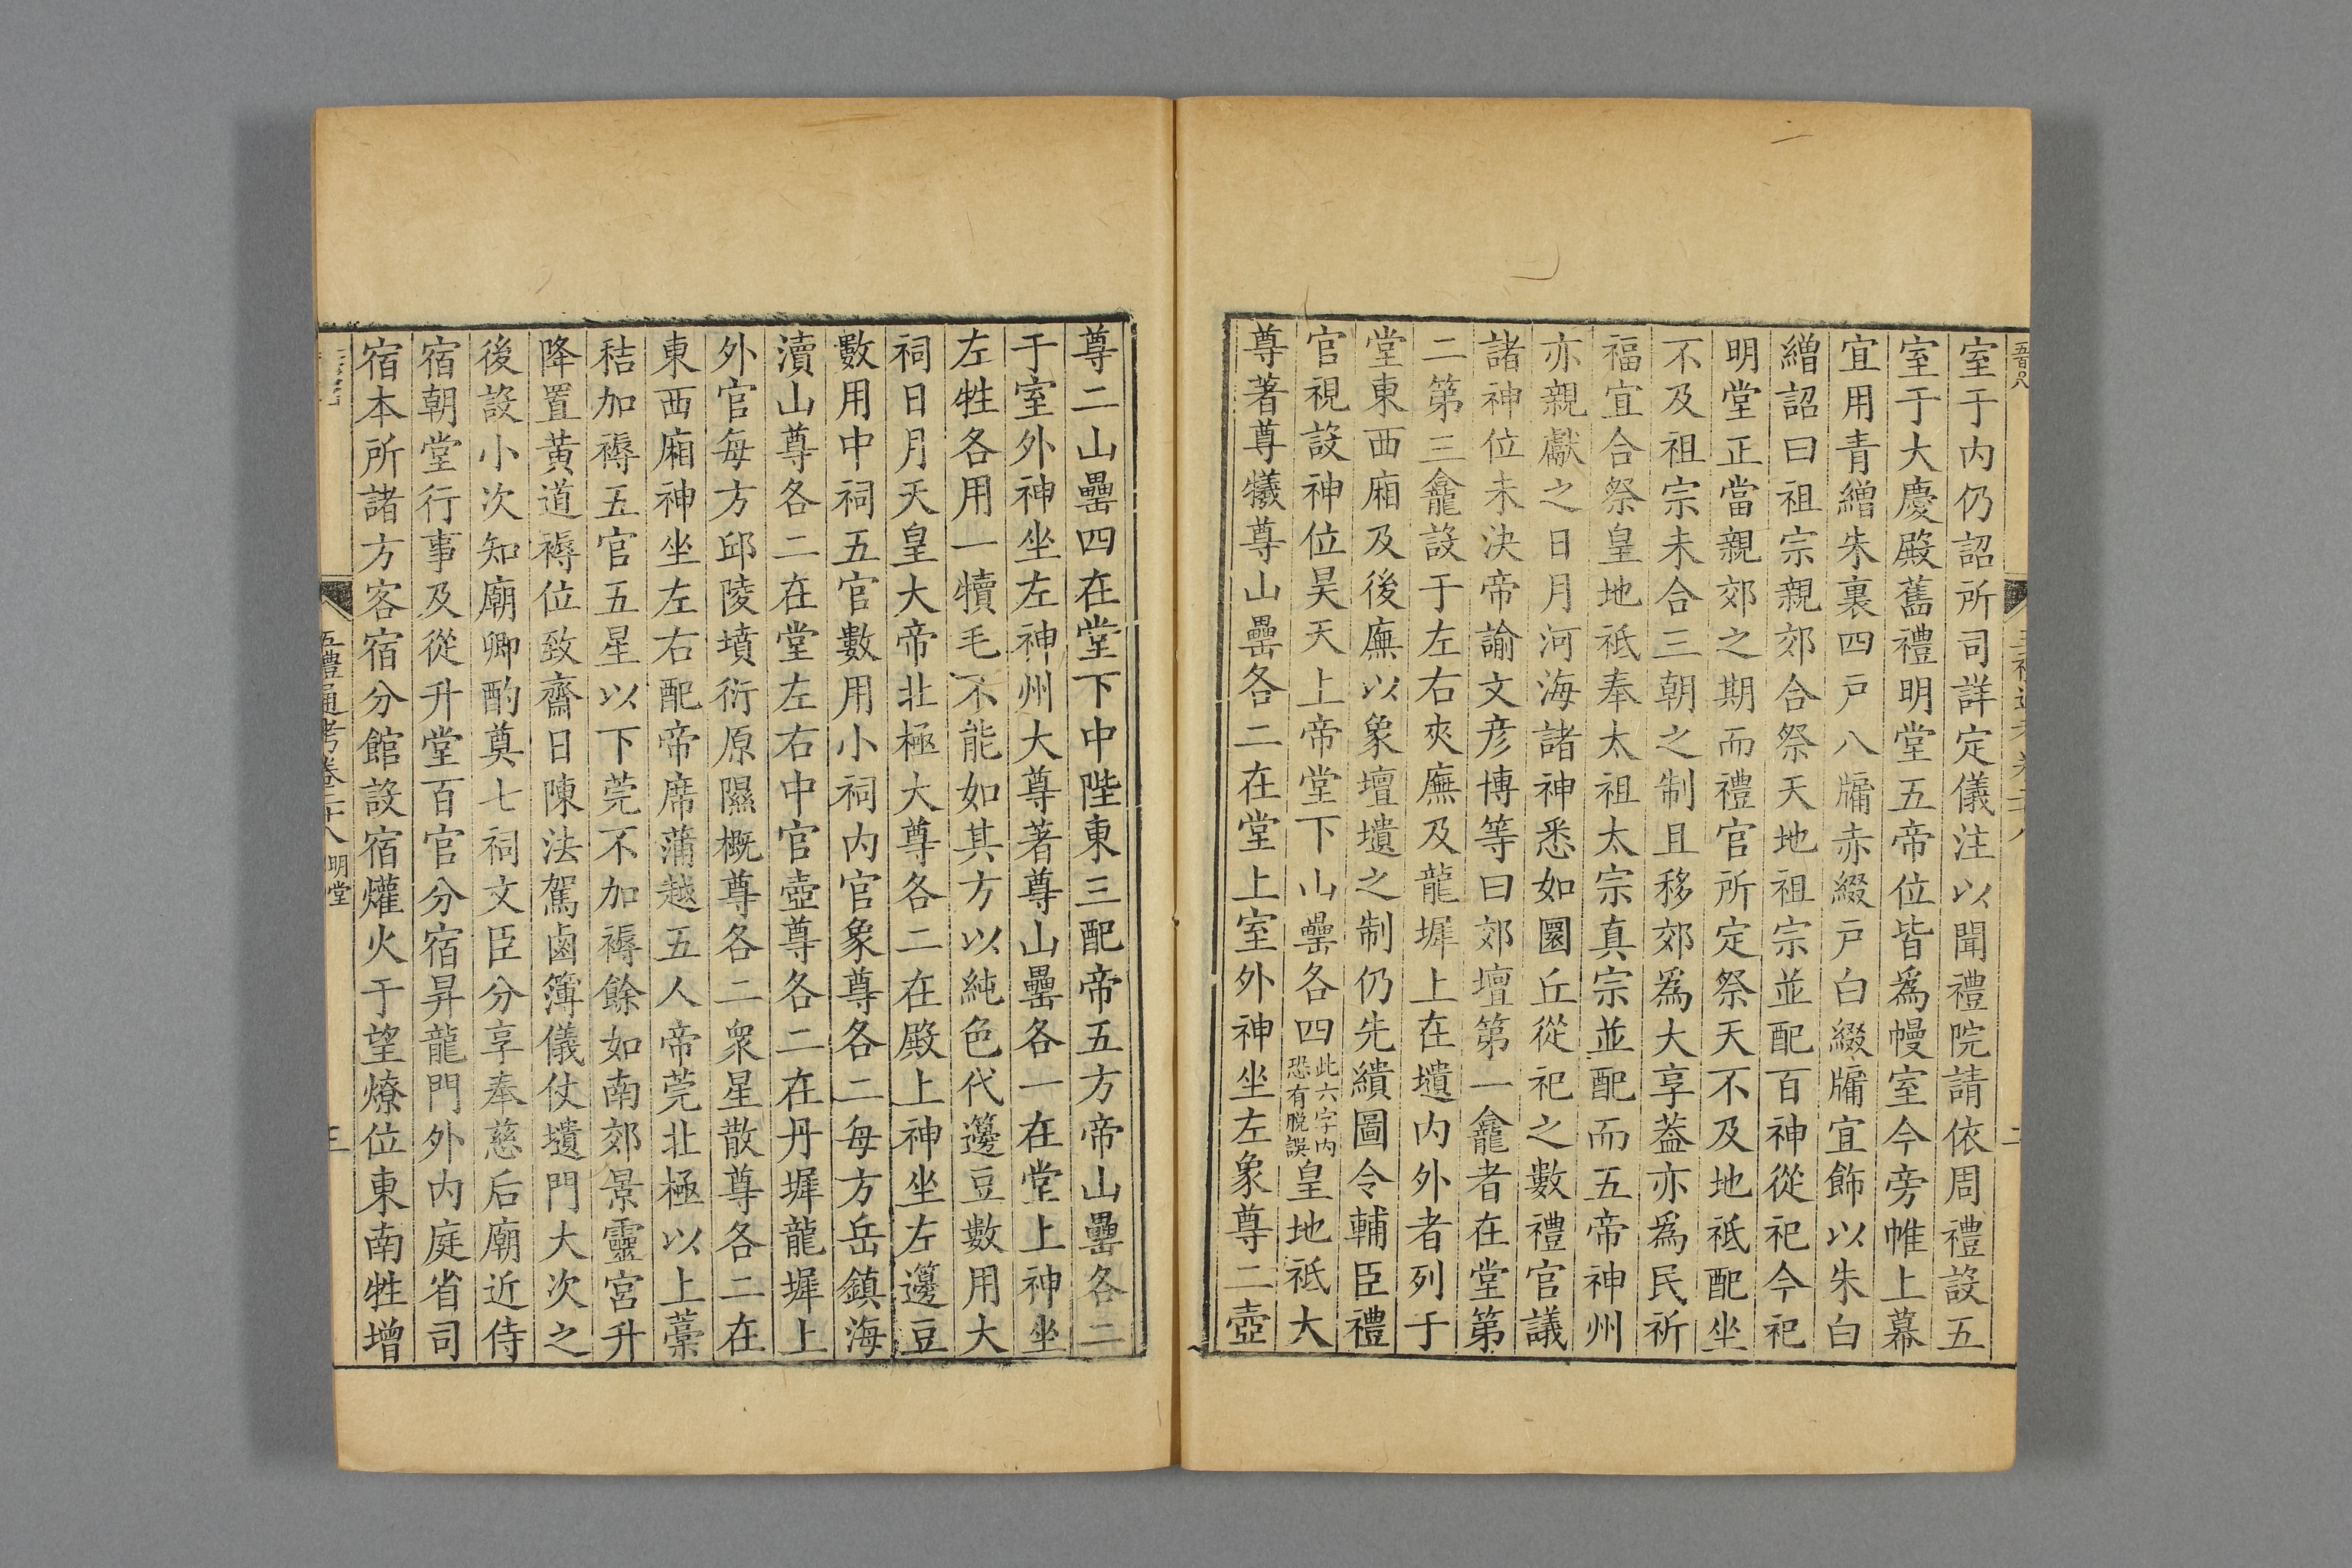 室于內仍詔所司詳定儀注以聞禮院請依周禮設五
室于大慶殿舊禮明堂五帝位皆爲幔室今旁帷上幕
宜用青繒朱裏四戸八牖赤綴戸白綴牖宜飾以朱白
繒詔曰祖宗親郊合祭天地祖宗並配百神從祀今祀
明堂正當親郊之期而禮官所定祭天不及地祗配坐
不及祖宗未合三朝之制且移郊爲大享葢亦爲民祈
福宜合祭皇地祗奉太祖太宗真宗並配而五帝神州
亦親獻之日月河海諸神悉如圜丘從祀之數禮官議
諸神位未決帝諭文彦博等曰郊壇第一龕者在堂第
二第三龕設于左右夾廡及龍墀上在壝內外者列于
堂東西廂及後廡以象壇壝之制仍先繢圖令輔臣禮
官視設神位昊天上帝堂下山罍各四此六字內恐有脫誤皇地祗大
尊著尊犧尊山罍各二在堂上室外神坐左象尊二壺
尊二山罍四在堂下中陛東三配帝五方帝山罍各二
于室外神坐左神州大尊著尊山罍各一在堂上神坐
左牲各用一犢毛不能如其方以純色代籩豆數用大
祠日月天皇大帝北極大尊各二在殿上神坐左籩豆
數用中祠五官數用小祠內官象尊各二每方岳鎮海
瀆山尊各二在堂左右中官壺尊各二在丹墀龍墀上
外官每方邱陵墳衍原隰概尊各二衆星散尊各二在
東西廂神坐左右配帝席蒲越五人帝莞北極以上藁
秸加褥五官五星以下莞不加褥餘如南郊景靈宮升
降置黃道褥位致齋日陳法駕鹵簿儀仗壝門大次之
後設小次知廟卿酌奠七祠文臣分享奉慈后廟近侍
宿朝堂行事及從升堂百官分宿昇龍門外內庭省司
宿本所諸方客宿分館設宿爟火于望燎位東南牲增
五禮通考卷二十八 明堂
三